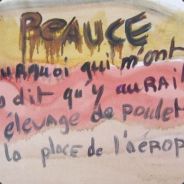 BEAUCE
OURQUOI qui m'ont
dit qu'y AURAI
élevage de poulet
la place de l'AÉROP